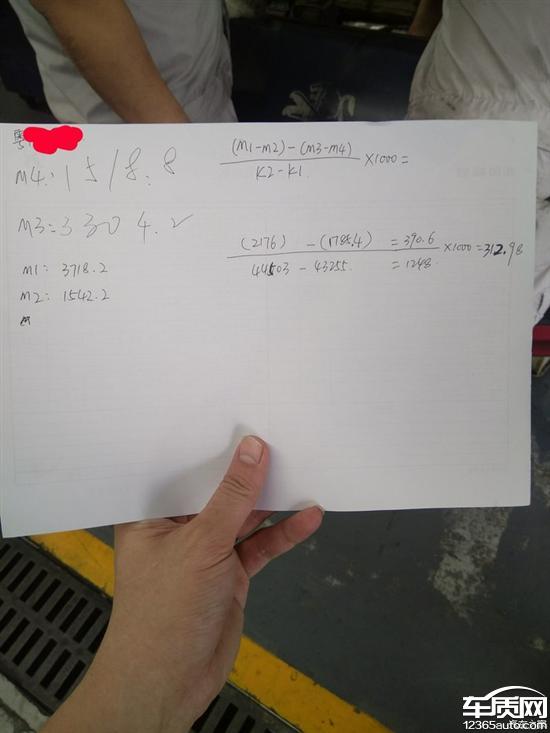 粤
m4: 1518.8
m3= 3304.2
m1: 3718.2
m2: 1542.2
m
(m1-m2)-(m3-m4)
K2-K1
×1000=
(2176) -(1785.4) =390.6
44503 - 43255 =1248
×1000=312.98
车质网
12365auto.com